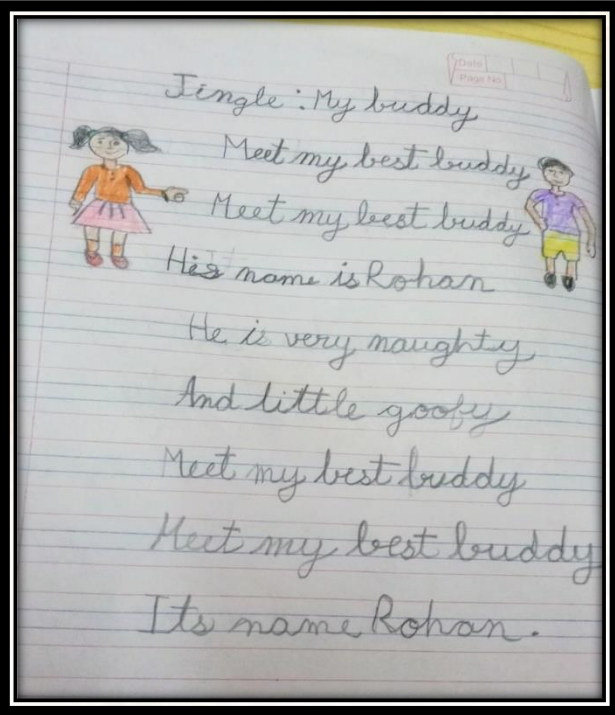 Date
Page No.
Jingle : My buddy
Meet my best buddy
Meet my best buddy
His name is Rohan
He is very naughty
And little goofy
Meet my best buddy
Meet my best buddy
Its name Rohan.